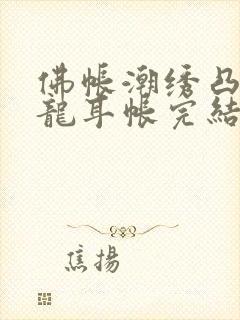 佛帳潮绣凸
龍耳帳完結
焦揚